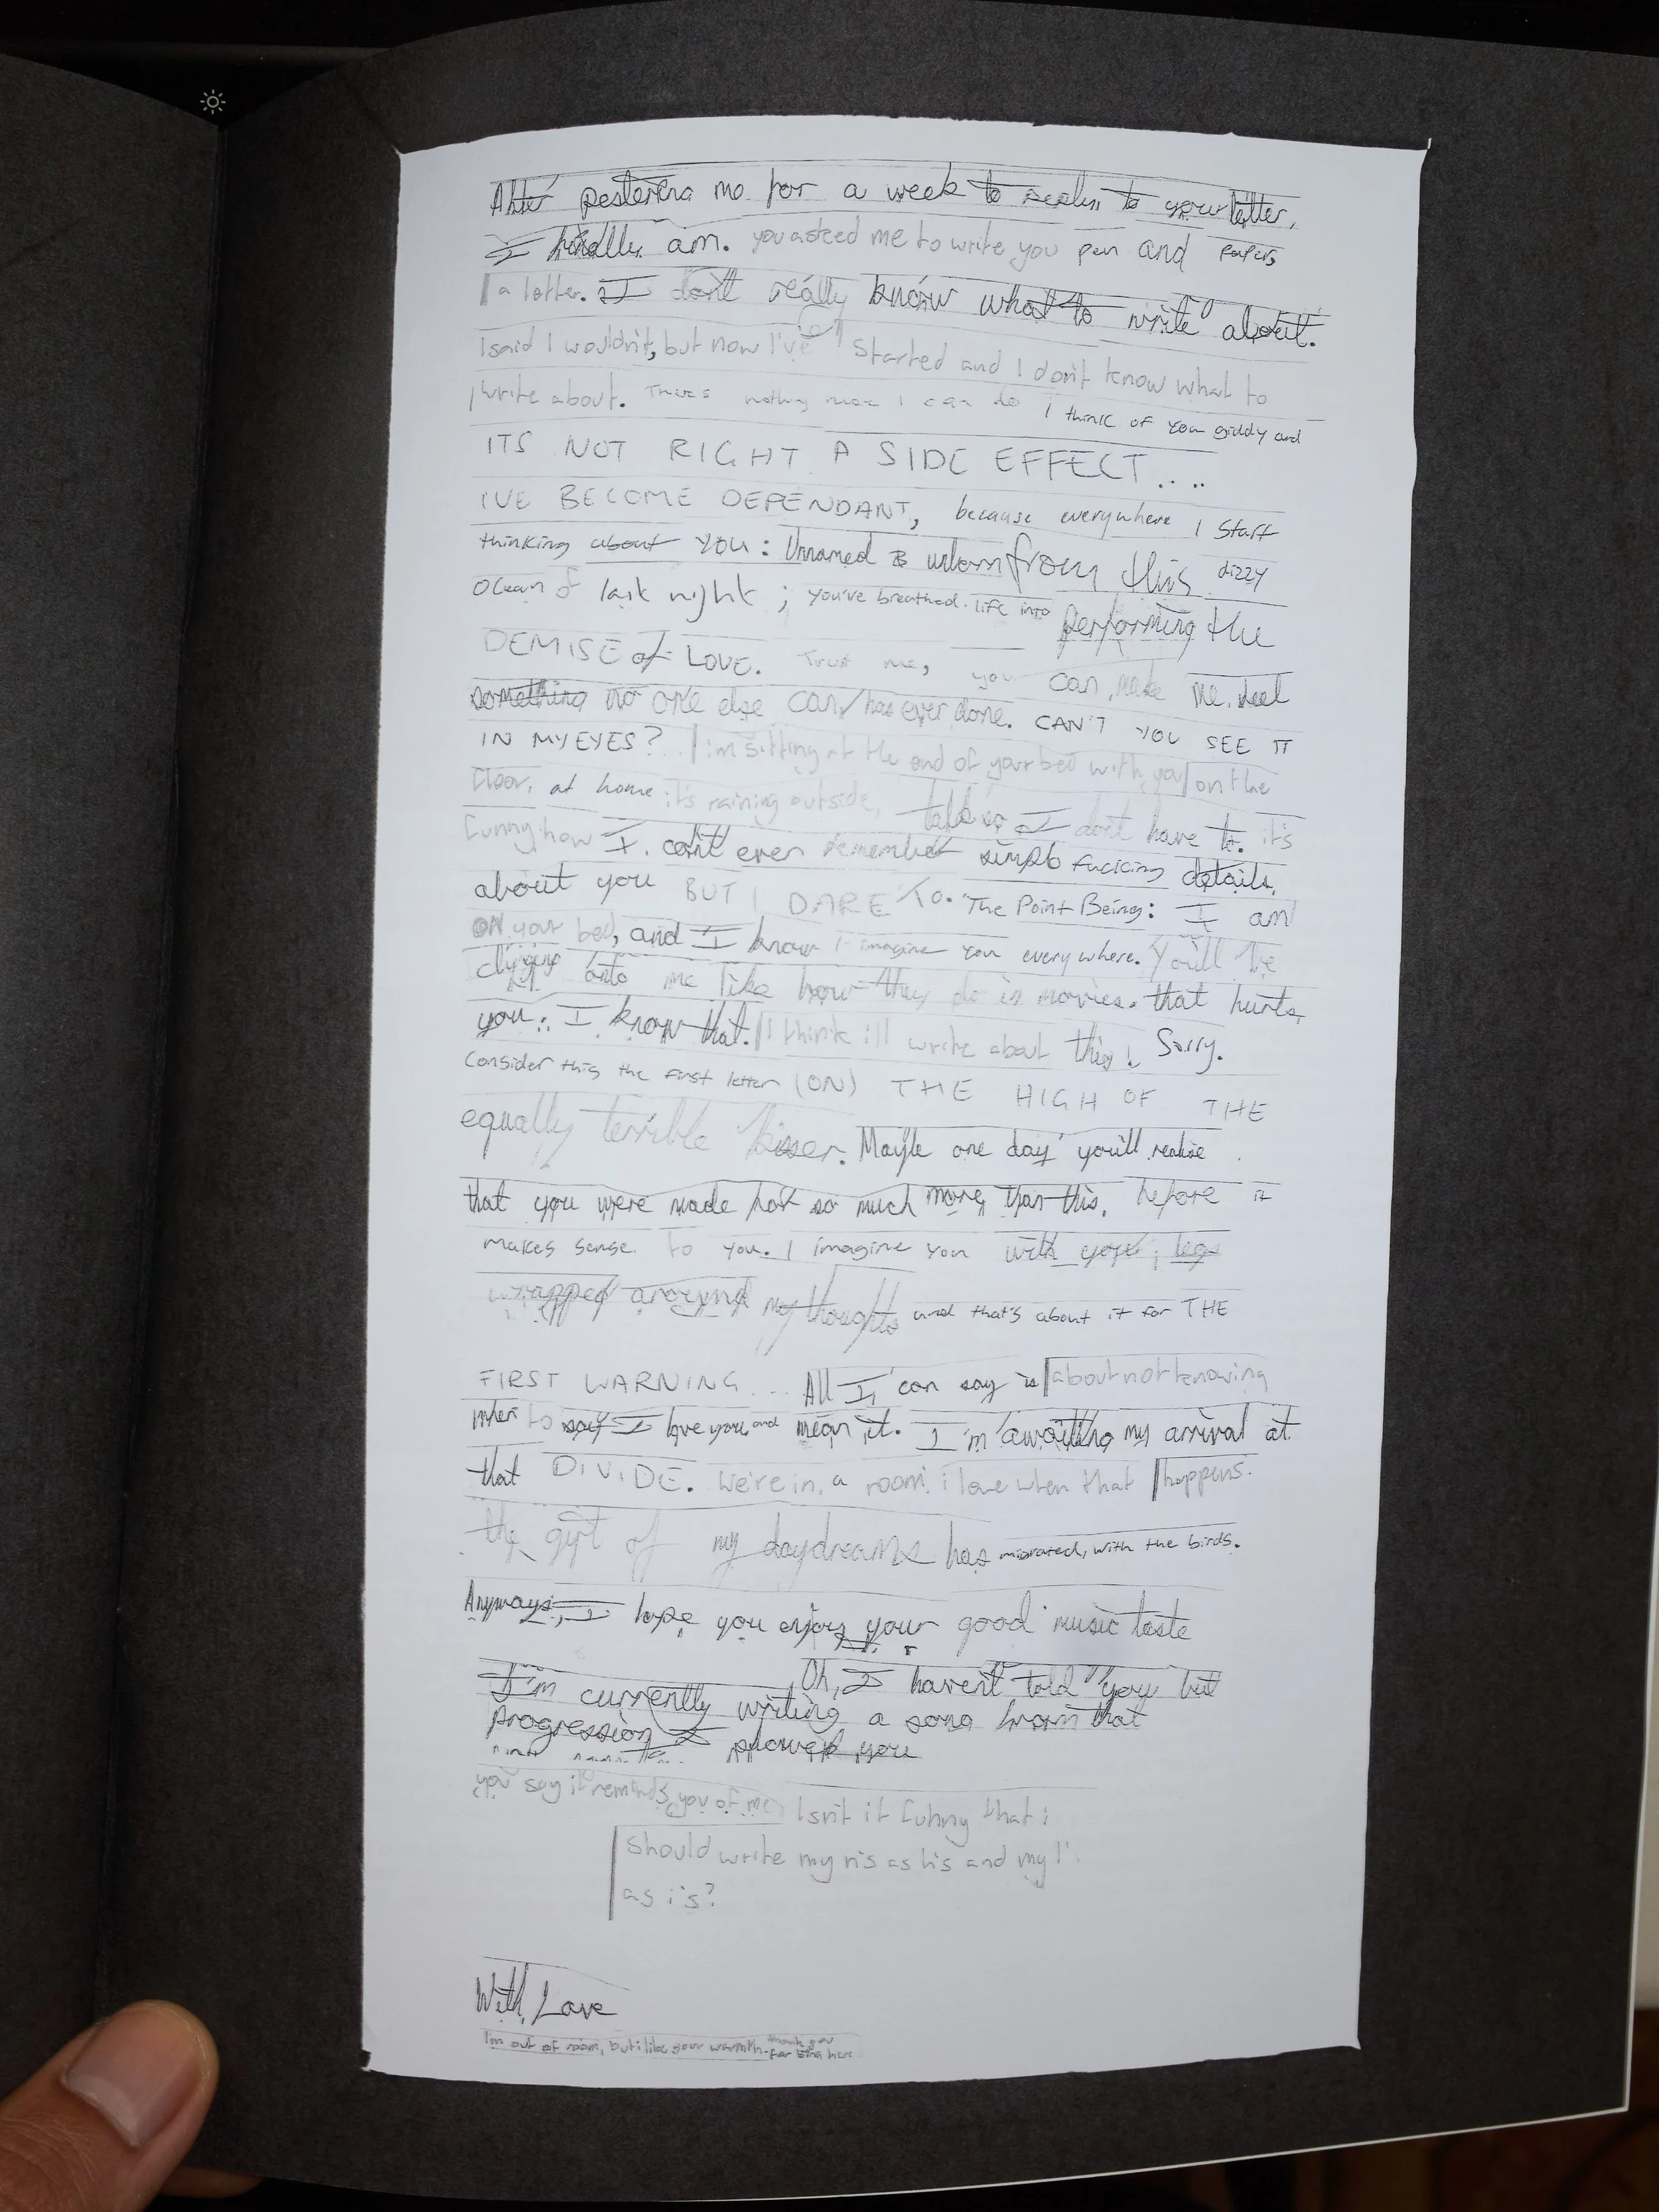 After pestering me for a week to reply to your letter,
I finally am. you asked me to write you pen and paper,
a letter. I don't really know what to write about.
I said I wouldn't, but now I've started and I don't know what to
write about. There's nothing more I can do I think of you giddy and
ITS NOT RIGHT A SIDE EFFECT....
I'VE BECOME DEPENDANT, because everywhere I start
thinking about YOU: Unnamed & unborn from this dizzy
ocean of last night; you've breathed life into performing the
DEMISE of LOVE. Trust me, you can make me feel
something no one else can/has ever done. CAN'T YOU SEE IT
IN MY EYES? I'm sitting at the end of your bed with you on the
floor, at home it's raining outside, talk so I don't have to. it's
funny how I can't even remember simple fucking details,
about you BUT I DARE TO. The Point Being: I am
ON your bed, and I know I imagine you everywhere. You'll be
clinging onto me like how they do in movies. that hurts
you: I know that. I think i'll write about this! Sorry.
Consider this the first letter (ON) THE HIGH OF THE
equally terrible kisser. Maybe one day you'll realise
that you were made for so much more than this, before it
makes sense to you. I imagine you with your leg
wrapped around my thoughts and that's about it for THE
FIRST WARNING.... All I can say is about not knowing
when to say I love you and mean it. I'm awaiting my arrival at
that DIVIDE. We're in a room, i love when that happens.
the gift of my daydreams has migrated, with the birds.
Anyways, I hope you enjoy your good music taste
Oh, I haven't told you but
I'm currently writing a song from that
progression I showed you
you say it reminds you of me Isn't it funny that i
should write my n's as h's and my l's
as i's?
With Love
I'm out of room, but i like your warmth. thank you
for being here